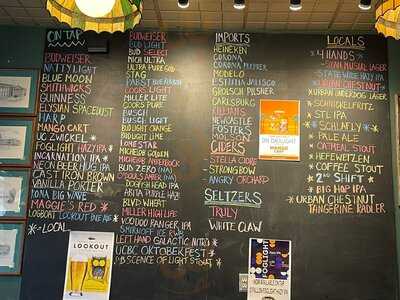 ON TAP
BUDWEISER
NATTY LIGHT
BLUE MOON
SMITHWICKS
GUINNESS
ELYSIAN SPACEDUST
HARP
MANGO CART
UC ZWICKEL
FOGLIGHT HAZY IPA
INCARNATION IPA
NEON BEER HUG IPA
CAST IRON BROWN
VANILLA PORTER
KONA BIG WAVE
MAGGIE'S RED
LOGBOAT LOOKOUT
*=LOCAL
BUDWEISER
BUD LIGHT
BUD SELECT
MICH ULTRA
ULTRA PURE GOLD
STAG
PABST
COORS LIGHT
MILLER LITE
COORS PURE
BUSCH
BUSCH LIGHT
BUD LIGHT ORANGE
BUD LIGHT LIME
LONE STAR
MICHELOB GOLDEN
MICHELOB AMBERBOCK
BUD ZERO
DOGFISH HEAD IPA
RLVD WHEAT
MILLER HIGH LIFE
VOODOO RANGER IPA
SMIRNOFF ICE
LEFT HAND GALACTIC NITRO
UCBC OKTOBERFEST
SCENCE OF LIGHT STOUT
IMPORTS
HEINEKEN
CORONA
CORONA PREMIER
MODELO
ESTRELLA JALISCO
GROLSCH PILSNER
CARLSBURG
GUINNESS
NEWCASTLE
FOSTERS
MOLSON
CIDERS
STELLA CIDRE
STRONGBOW
ANGRY ORCHARD
SELTZERS
TRULY
WHITE CLAW
LOCALS
4 HANDS
STATE WIDE HAZY IPA
URBAN CHESTNUT
URBAN UNDERDOG LAGER
SCHNICKELFRITZ
STL IPA
SCHLAFLY
PALE ALE
OATMEAL STOUT
HEFEWEIZEN
COFFEE STOUT
2ND SHIFT
BIG HOP IPA
URBAN CHESTNUT
TANGERINE RADLER
LOOKOUT
FOGLIGHT